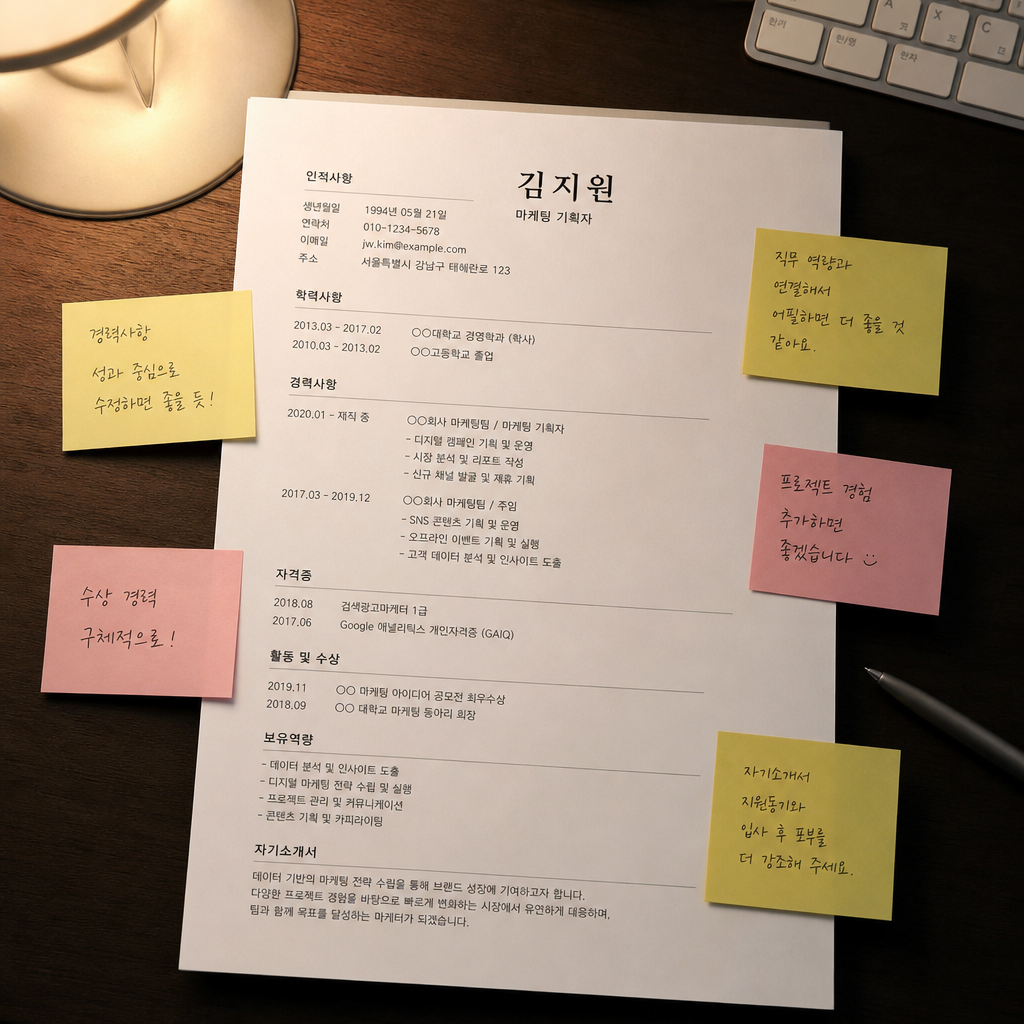 김지원
마케팅 기획자
인적사항
생년월일 1994년 05월 21일
연락처 010-1234-5678
이메일 jw.kim@example.com
주소 서울특별시 강남구 테헤란로 123
학력사항
2013.03 - 2017.02 ○○대학교 경영학과 (학사)
2010.03 - 2013.02 ○○고등학교 졸업
경력사항
2020.01 - 재직 중 ○○회사 마케팅팀 / 마케팅 기획자
- 디지털 캠페인 기획 및 운영
- 시장 분석 및 리포트 작성
- 신규 채널 발굴 및 제휴 기획
2017.03 - 2019.12 ○○회사 마케팅팀 / 주임
- SNS 콘텐츠 기획 및 운영
- 오프라인 이벤트 기획 및 실행
- 고객 데이터 분석 및 인사이트 도출
자격증
2018.08 검색광고마케터 1급
2017.06 Google 애널리틱스 개인자격증 (GAIQ)
활동 및 수상
2019.11 ○○ 마케팅 아이디어 공모전 최우수상
2018.09 ○○ 대학교 마케팅 동아리 회장
보유역량
- 데이터 분석 및 인사이트 도출
- 디지털 마케팅 전략 수립 및 실행
- 프로젝트 관리 및 커뮤니케이션
- 콘텐츠 기획 및 카피라이팅
자기소개서
데이터 기반의 마케팅 전략 수립을 통해 브랜드 성장에 기여하고자 합니다.
다양한 프로젝트 경험을 바탕으로 빠르게 변화하는 시장에서 유연하게 대응하며,
팀과 함께 목표를 달성하는 마케터가 되겠습니다.
경력사항
성과 중심으로
수정하면 좋을 듯!
수상 경력
구체적으로!
직무 역량과
연결해서
어필하면 더 좋을 것
같아요.
프로젝트 경험
추가하면
좋겠습니다
자기소개서
지원동기와
입사 후 포부를
더 강조해 주세요.
A
X
C
한/영
한자